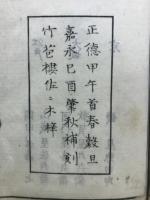 正德甲午首春穀旦
嘉永己酉肇秋補刻
竹苞樓佐々木梓